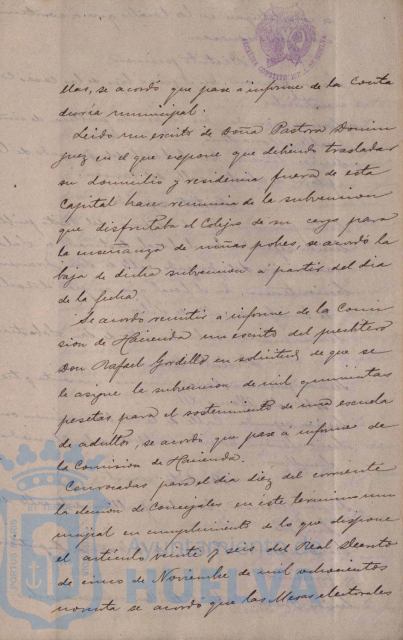 llas, se acordó que pase á informe de la Conta
duría municipal.
Leido un escrito de Doña Pastora Domin
guez en el que expone que debiendo trasladar
su domicilio y residencia fuera de esta
Capital hace renuncia de la subvencion
que disfrutaba el Colegio de su cargo para
la enseñanza de niñas pobres, se acordó la
baja de dicha subvencion á partir del dia
de la fecha.
Se acordó remitir á informe de la Comi
sion de Hacienda un escrito del presbitero
Don Rafael Gordillo en solicitud de que se
le asigne la subvencion de mil quinientas
pesetas para el sostenimiento de una escuela
de adultos, se acordó que pase á informe de
la Comision de Hacienda.
Convocadas para el dia diez del corriente
la eleccion de Concejales en éste termino mu
nicipal en cumplimiento de lo que dispone
el artículo veinte y seis del Real Decreto
de cinco de Noviembre de mil ochocientos
noventa se acordó que las Mesas electorales
Ayuntamiento de
HUELVA